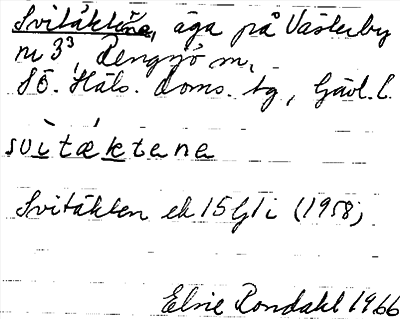 Svitäktene, äga på Västerby
nr 3³, Rengsjö sn,
SÖ. Häls. doms. tg, Gävl. l.
svìtæ̀ktena
Svitäkten ek 15 G1i (1958)
Elsie Rondahl 1966